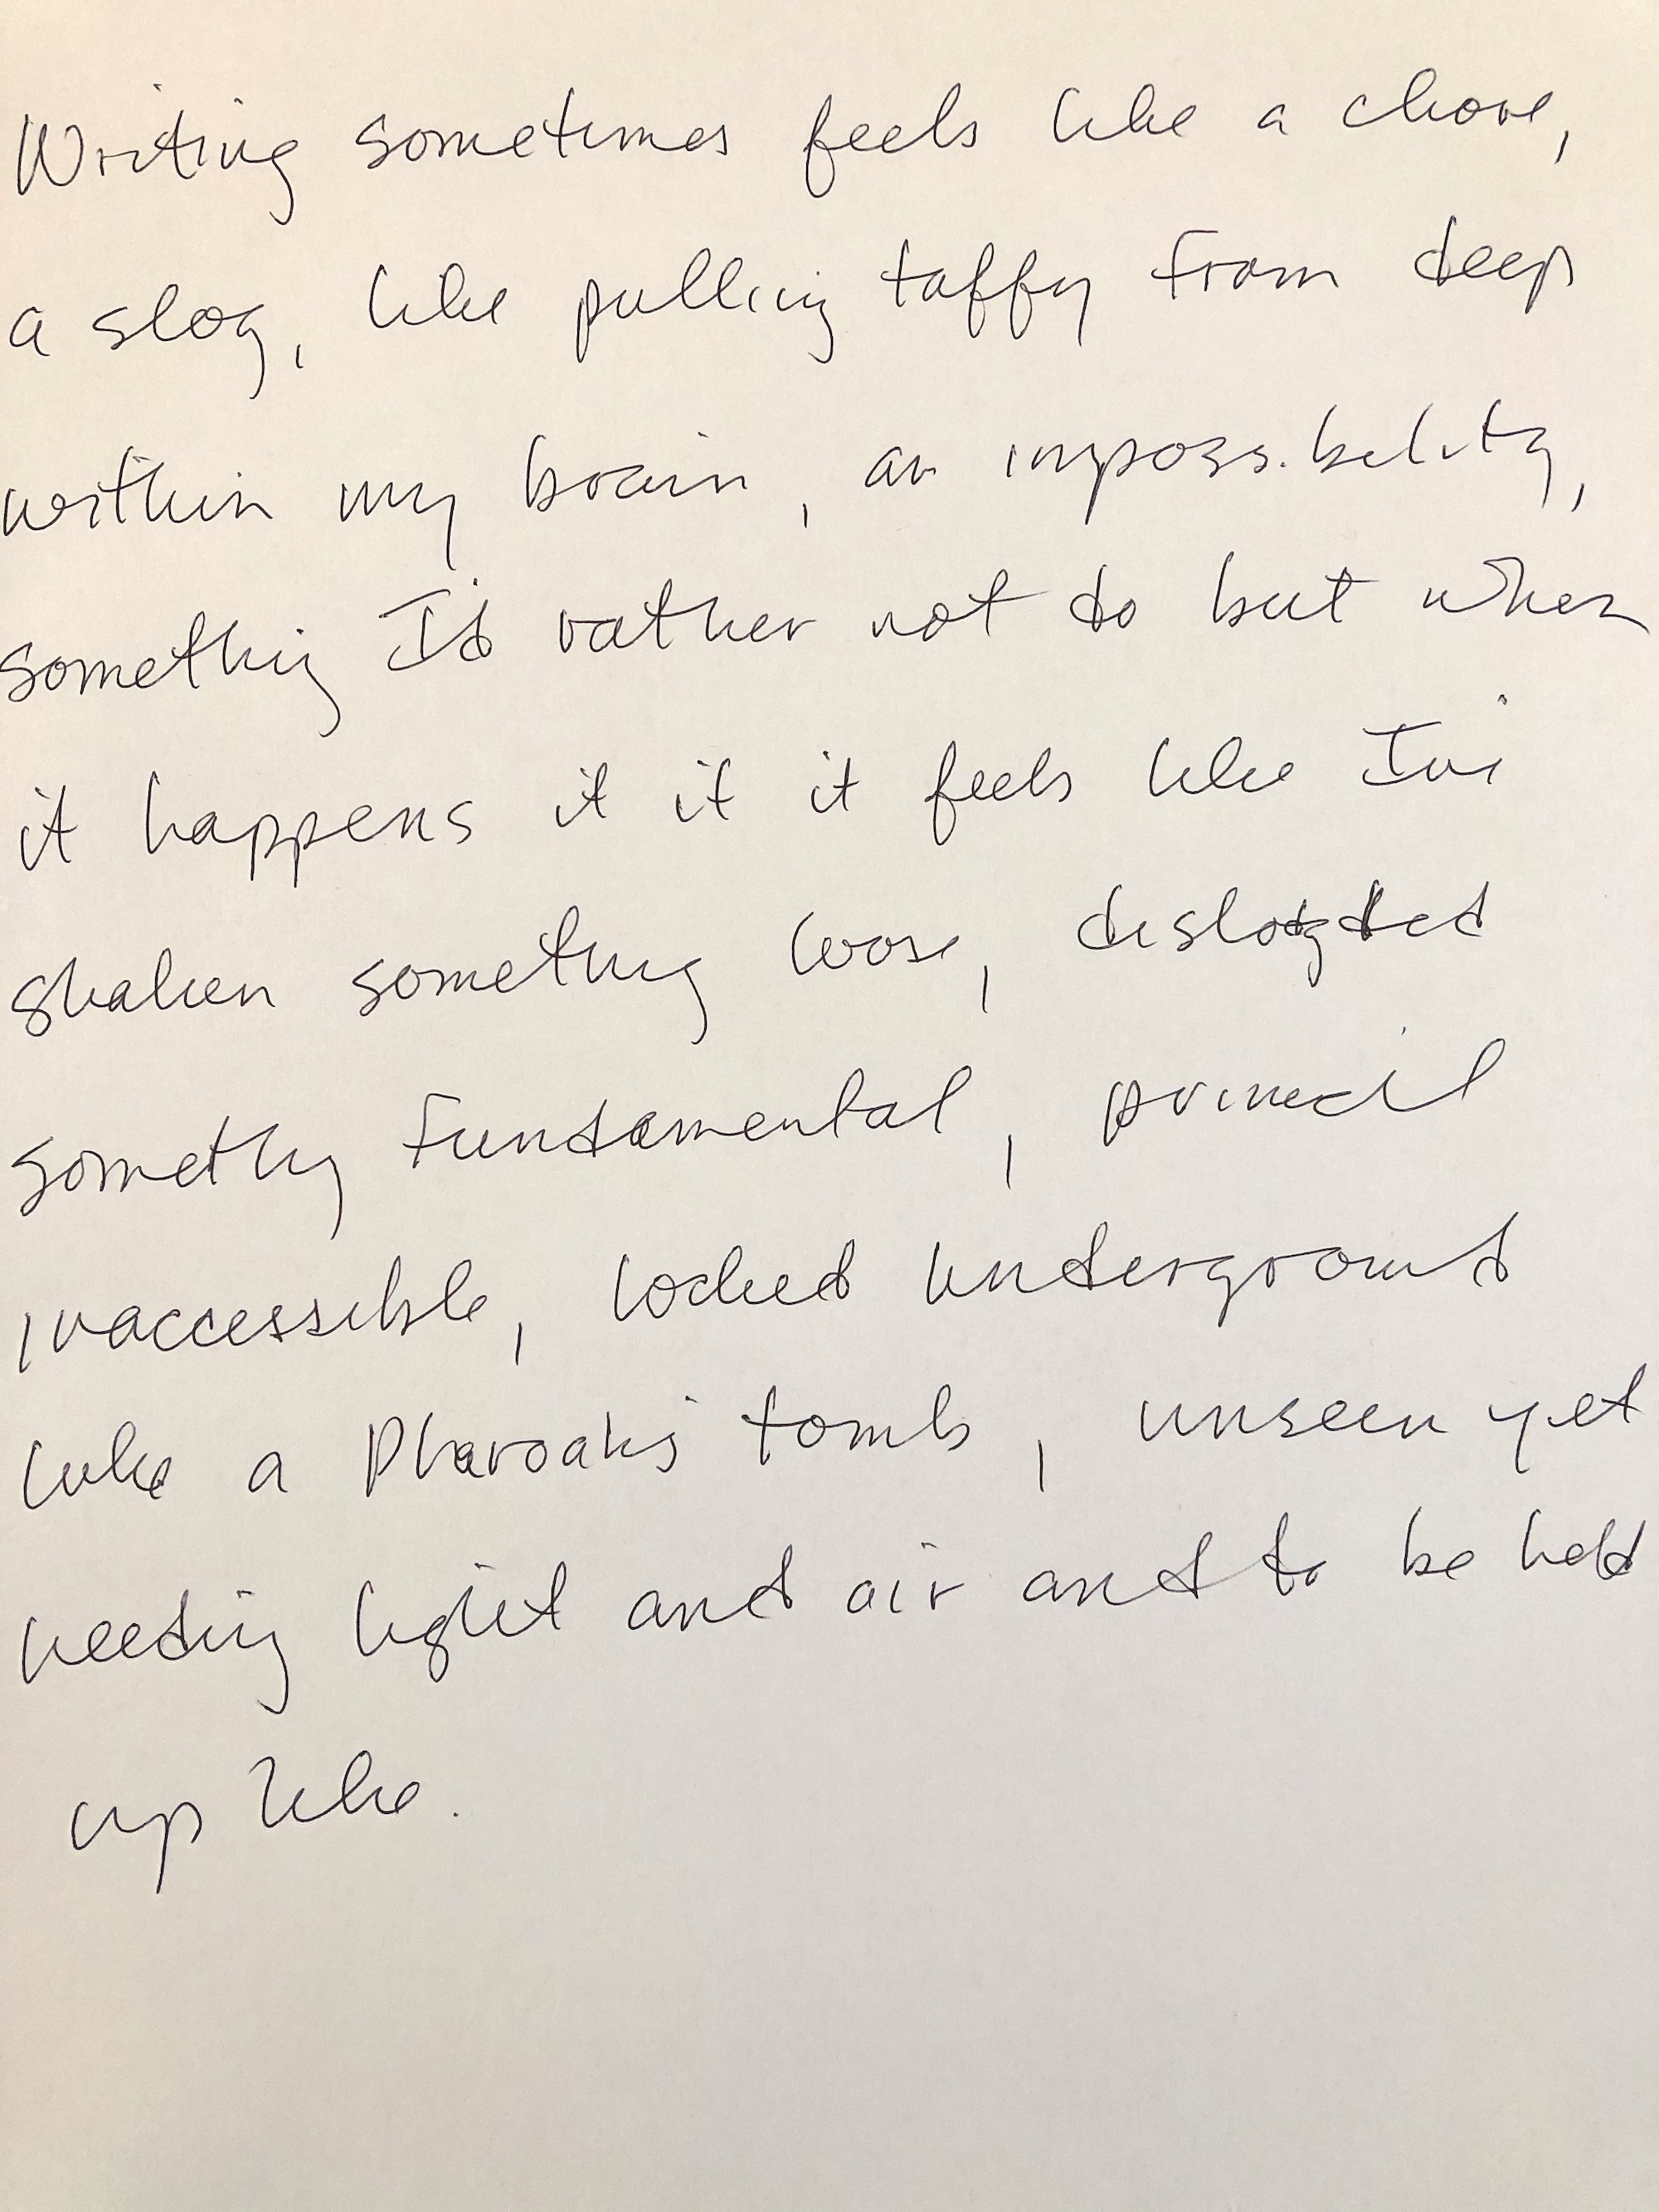 Writing sometimes feels like a chore,
a slog, like pulling taffy from deep
within my brain, an impossibility,
something I'd rather not do but when
it happens it it it feels like I've
shaken something loose, dislodged
something fundamental, primal
inaccessible, locked underground
like a Pharoah's tomb, unseen yet
needing light and air and to be held
up like.